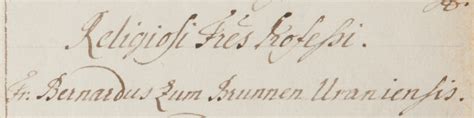 Religiosi Frēs Profeſsi.
Fr. Bernardus Zum Brunnen Uraniensis.